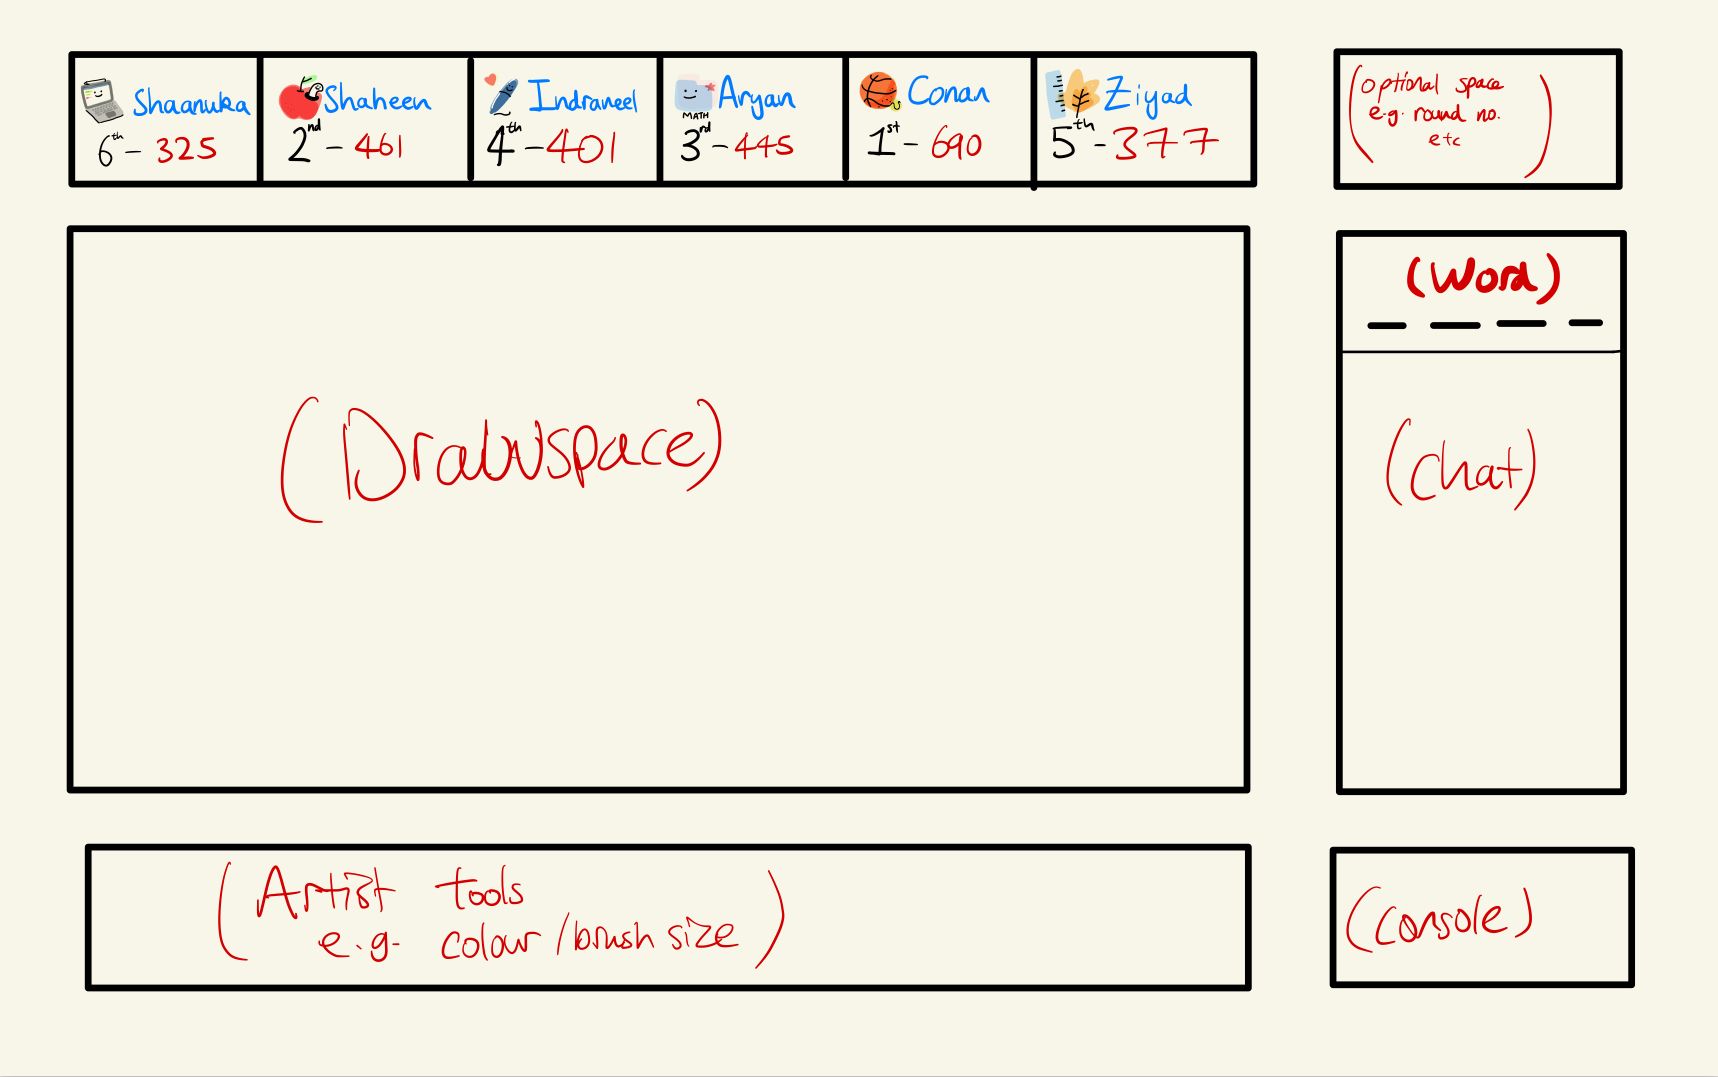 Shaanuka
6th - 325
Shaheen
2nd - 461
Indraneel
4th - 401
MATH
Aryan
3rd - 445
Conan
1st - 690
Ziyad
5th - 377
(optional space
e.g. round no.
etc)
(Word)
(Drawspace)
(chat)
(Artist tools
e.g. colour / brush size)
(console)